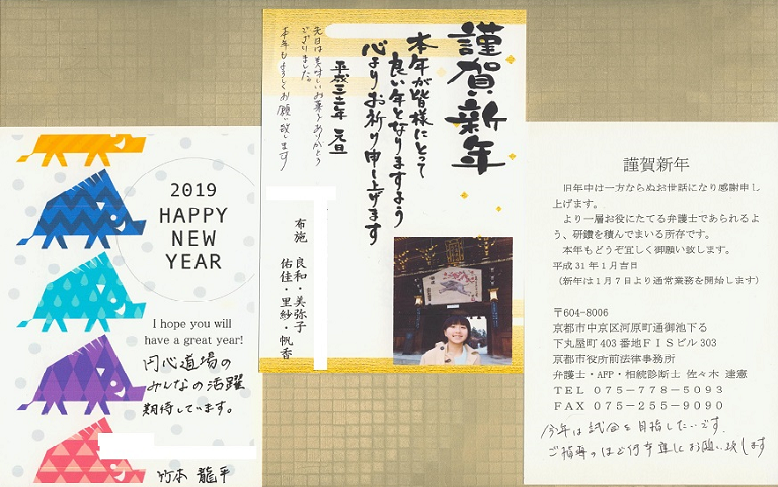 2019
HAPPY
NEW
YEAR
I hope you will
have a great year!
円心道場の
みんなの活躍
期待しています。
竹本 龍平
謹賀新年
本年が皆様にとって
良い年となりますよう
心よりお祈り申し上げます
平成三十一年 元旦
先日は美味しいお菓子ありがとう
ございました。
本年もよろしくお願い致します
布施 良和・美弥子
佑佳・里紗・帆香
謹賀新年
旧年中は一方ならぬお世話になり感謝申し
上げます。
より一層お役にたてる弁護士であられるよ
う、研鑽を積んでまいる所存です。
本年もどうぞ宜しく御願い致します。
平成 31 年 1 月吉日
(新年は 1 月 7 日より通常業務を開始します)
〒604-8006
京都市中京区河原町通御池下る
下丸屋町 403 番地ＦＩＳビル 303
京都市役所前法律事務所
弁護士・AFP・相続診断士 佐々木 達憲
ＴＥＬ 075-778-5093
ＦＡＸ 075-255-9090
今年は試合を目指したいです。
ご指導のほど何卒宜しくお願い致します